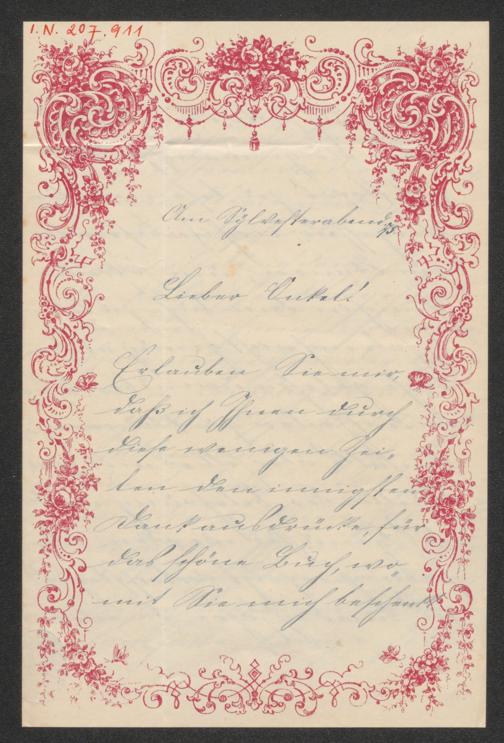 I. N. 207.911
Am Sylvesterabend 75
Lieber Onkel!
Erlauben Sie mir,
daß ich Ihnen durch
diese wenigen Zei-
len den innigsten
Dank ausdrücke für
das schöne Buch, wo-
mit Sie mich beschenkt